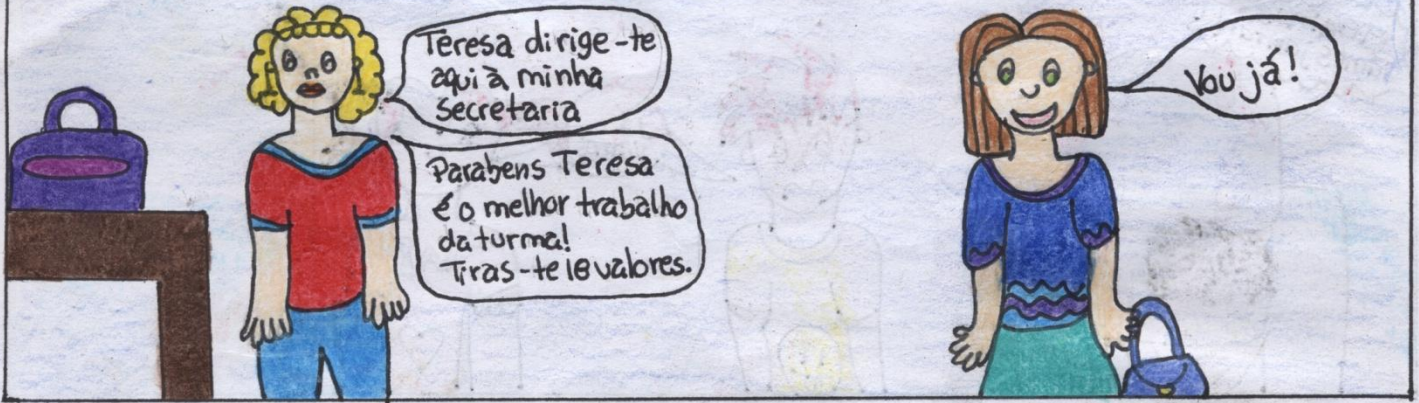 Teresa dirige-te
aqui à minha
secretaria
Parabens Teresa
é o melhor trabalho
da turma!
Tiras-te 18 valores.
Vou já!